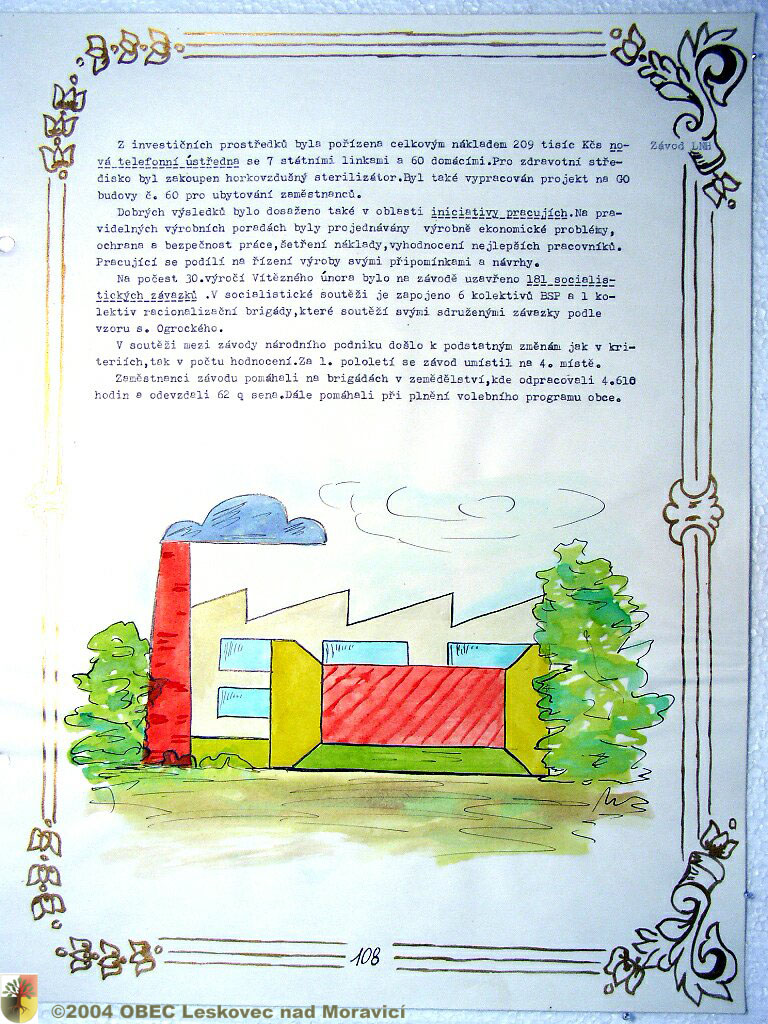 Z investičních prostředků byla pořízena celkovým nákladem 209 tisíc Kčs no-
vá telefonní ústředna se 7 státními linkami a 60 domácími.Pro zdravotní stře-
disko byl zakoupen horkovzdušný sterilizátor.Byl také vypracován projekt na GO
budovy č. 60 pro ubytování zaměstnanců.
Závod LNH
Dobrých výsledků bylo dosaženo také v oblasti iniciativy pracujích.Na pra-
videlných výrobních poradách byly projednávány  výrobně ekonomické problémy,
ochrana a bezpečnost práce,šetření náklady,vyhodnocení nejlepších pracovníků.
Pracující se podílí na řízení výroby svými připomínkami a návrhy.
Na počest 30.výročí Vítězného února bylo na závodě uzavřeno 181 socialis-
tických závazků .V socialistické soutěži je zapojeno 6 kolektivů BSP a 1 ko-
lektiv racionalizační brigády,které soutěží svými sdruženými závazky podle
vzoru s. Ogrockého.
V soutěži mezi závody národního podniku došlo k podstatným změnám jak v kri-
teriích,tak v počtu hodnocení.Za 1. pololetí se závod umístil na 4. místě.
Zaměstnanci závodu pomáhali na brigádách v zemědělství,kde odpracovali 4.610
hodin a odevzdali 62 q sena.Dále pomáhali při plnění volebního programu obce.
108
©2004 OBEC Leskovec nad Moravicí